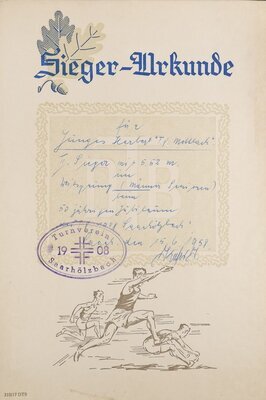 Sieger-Urkunde
für
Jünges Herbert T.V. Mettlach
1. Sieger mit 5,52 m
im
Weitsprung (Männer Senioren)
beim
50 jährigen Jubiläum
Saarhölzbach
den 15.6.1958
Turnverein
1908
Saarhölzbach